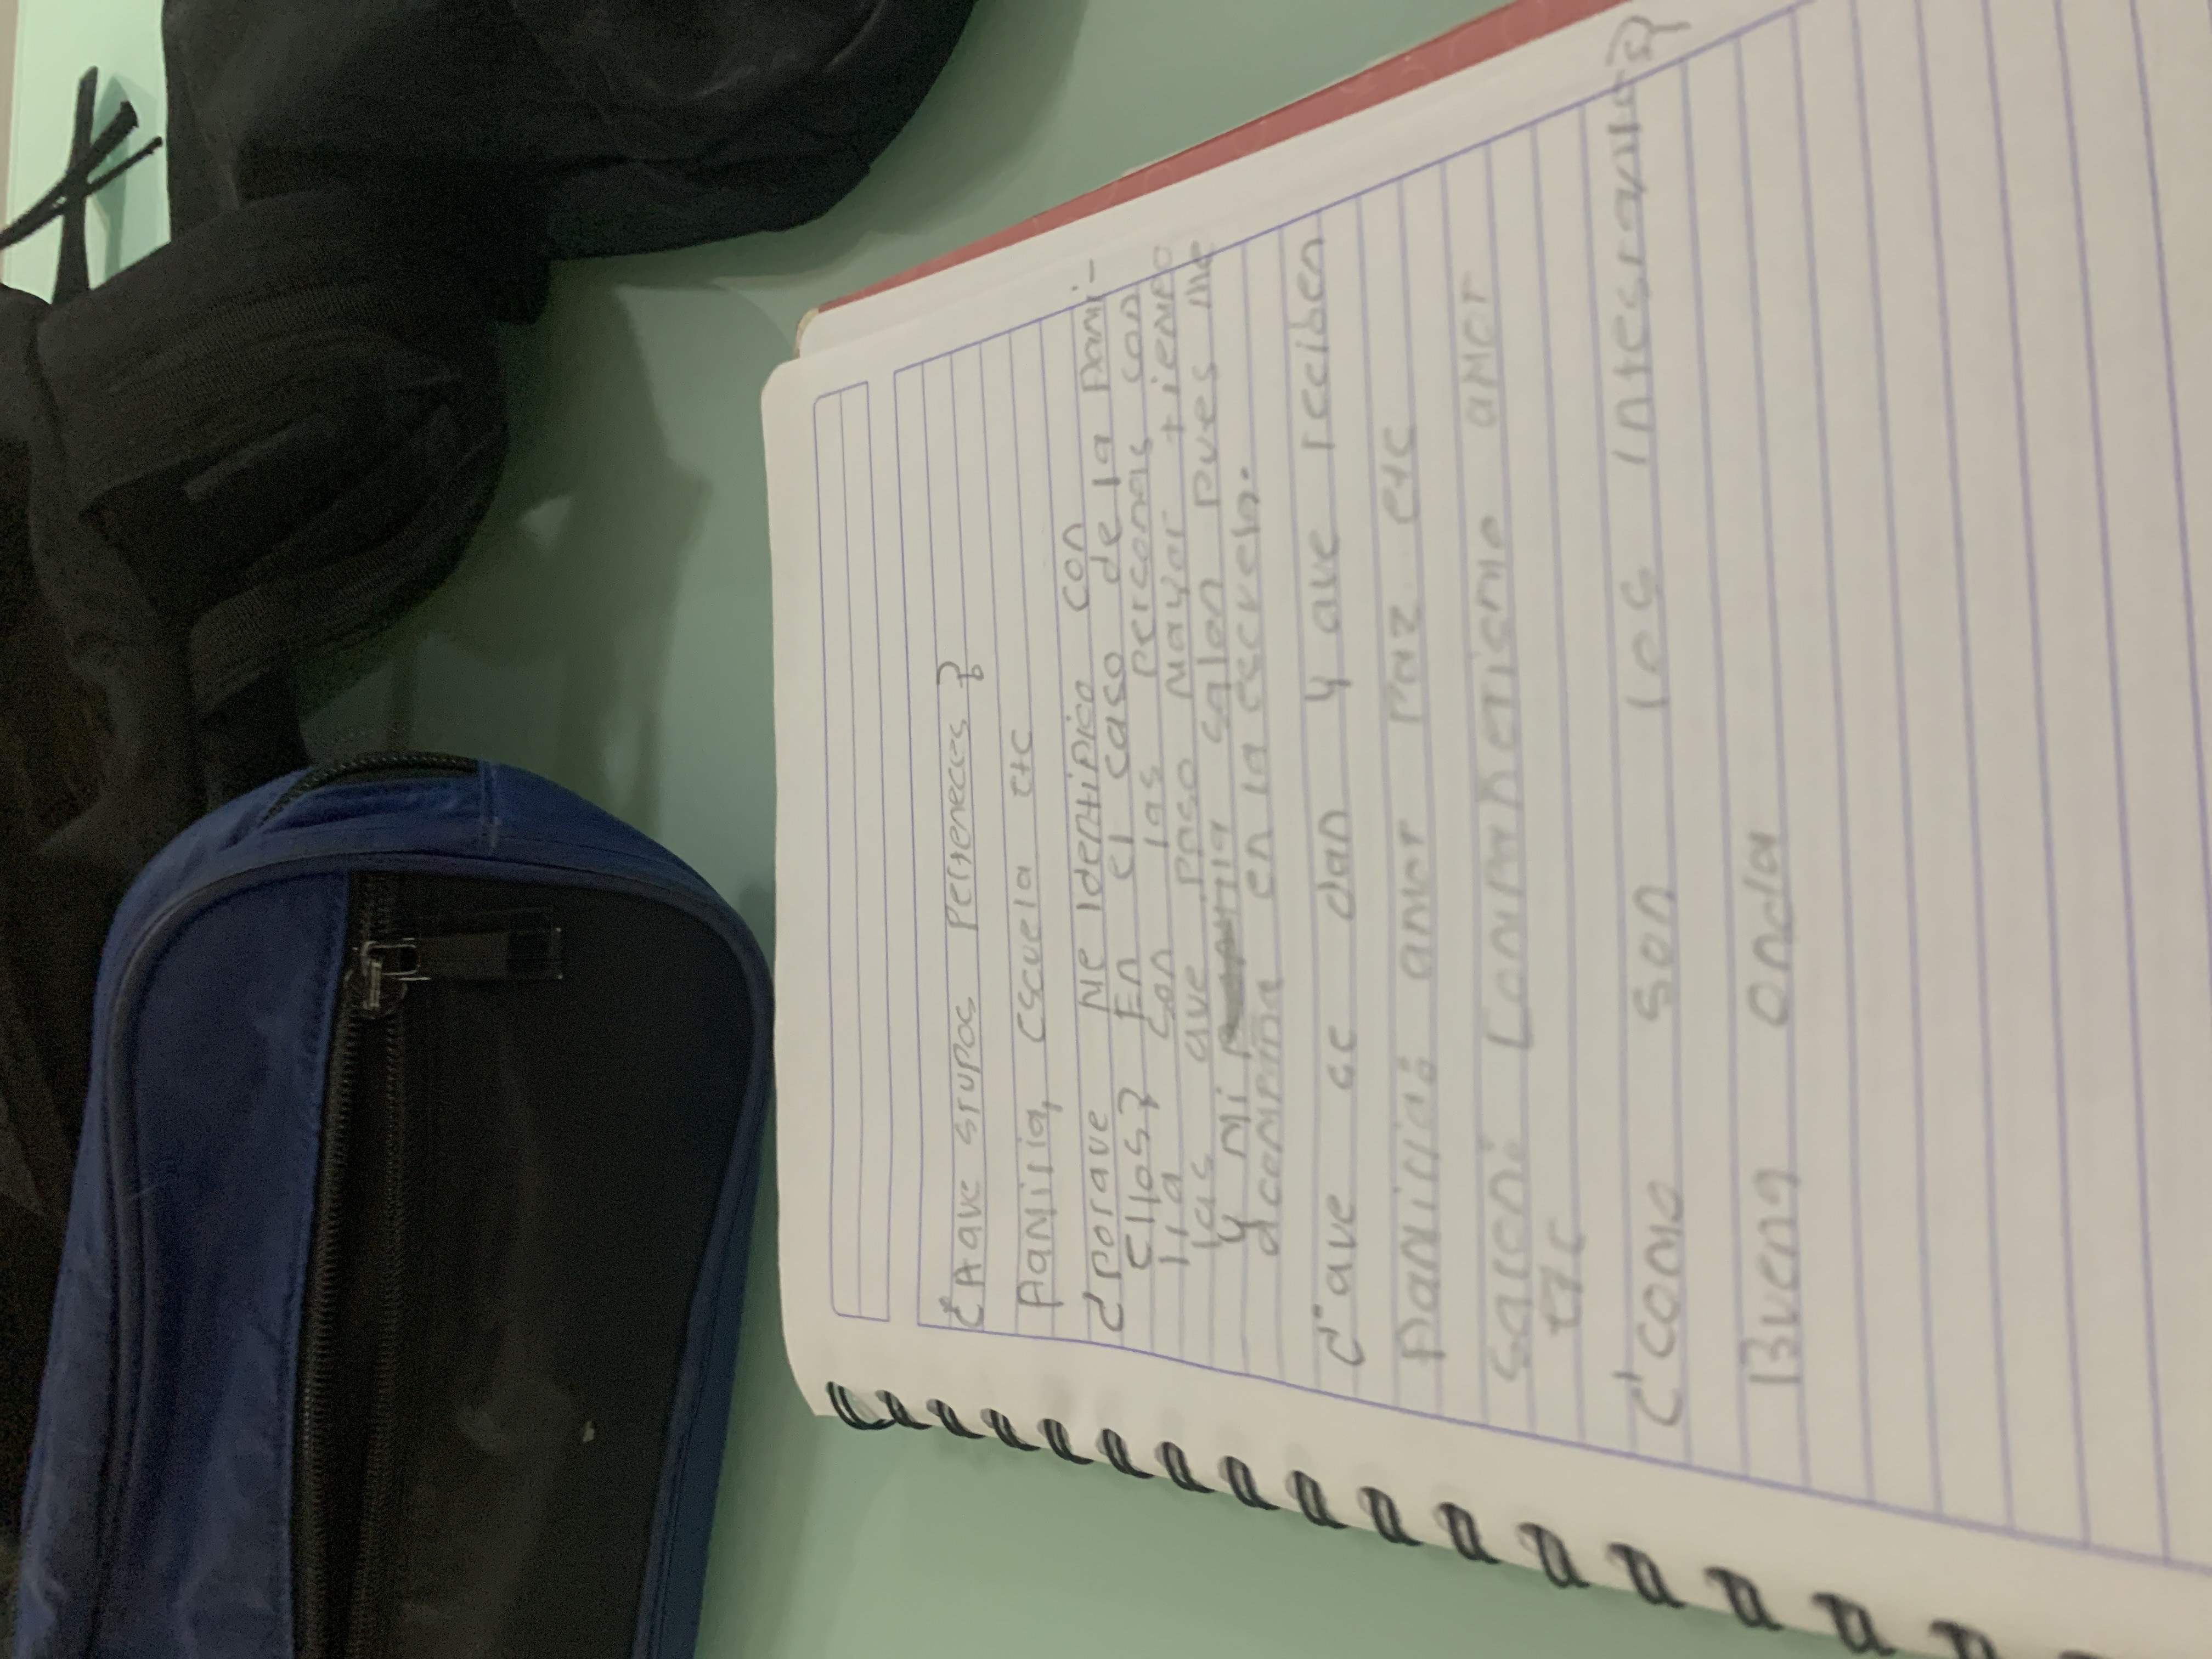 ¿A que grupos perteneces?
familia, escuela etc
¿porque me identifico con
ellos? En el caso de la fami-
lia son las personas con
las que paso mayor tiempo
y mi familia salon pues me
acompaña en la escuela.
¿que se dan y que reciben
familia: amor paz etc
Salon: compañerismo amor
etc
¿como son los integrantes?
Buena onda